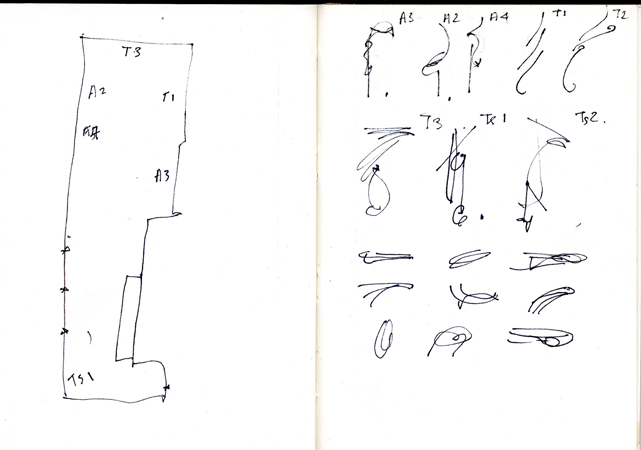 T3
A2
T1
A3
Ts1
A3 A2 A4 T1 T2
T3 Ts1 Ts2